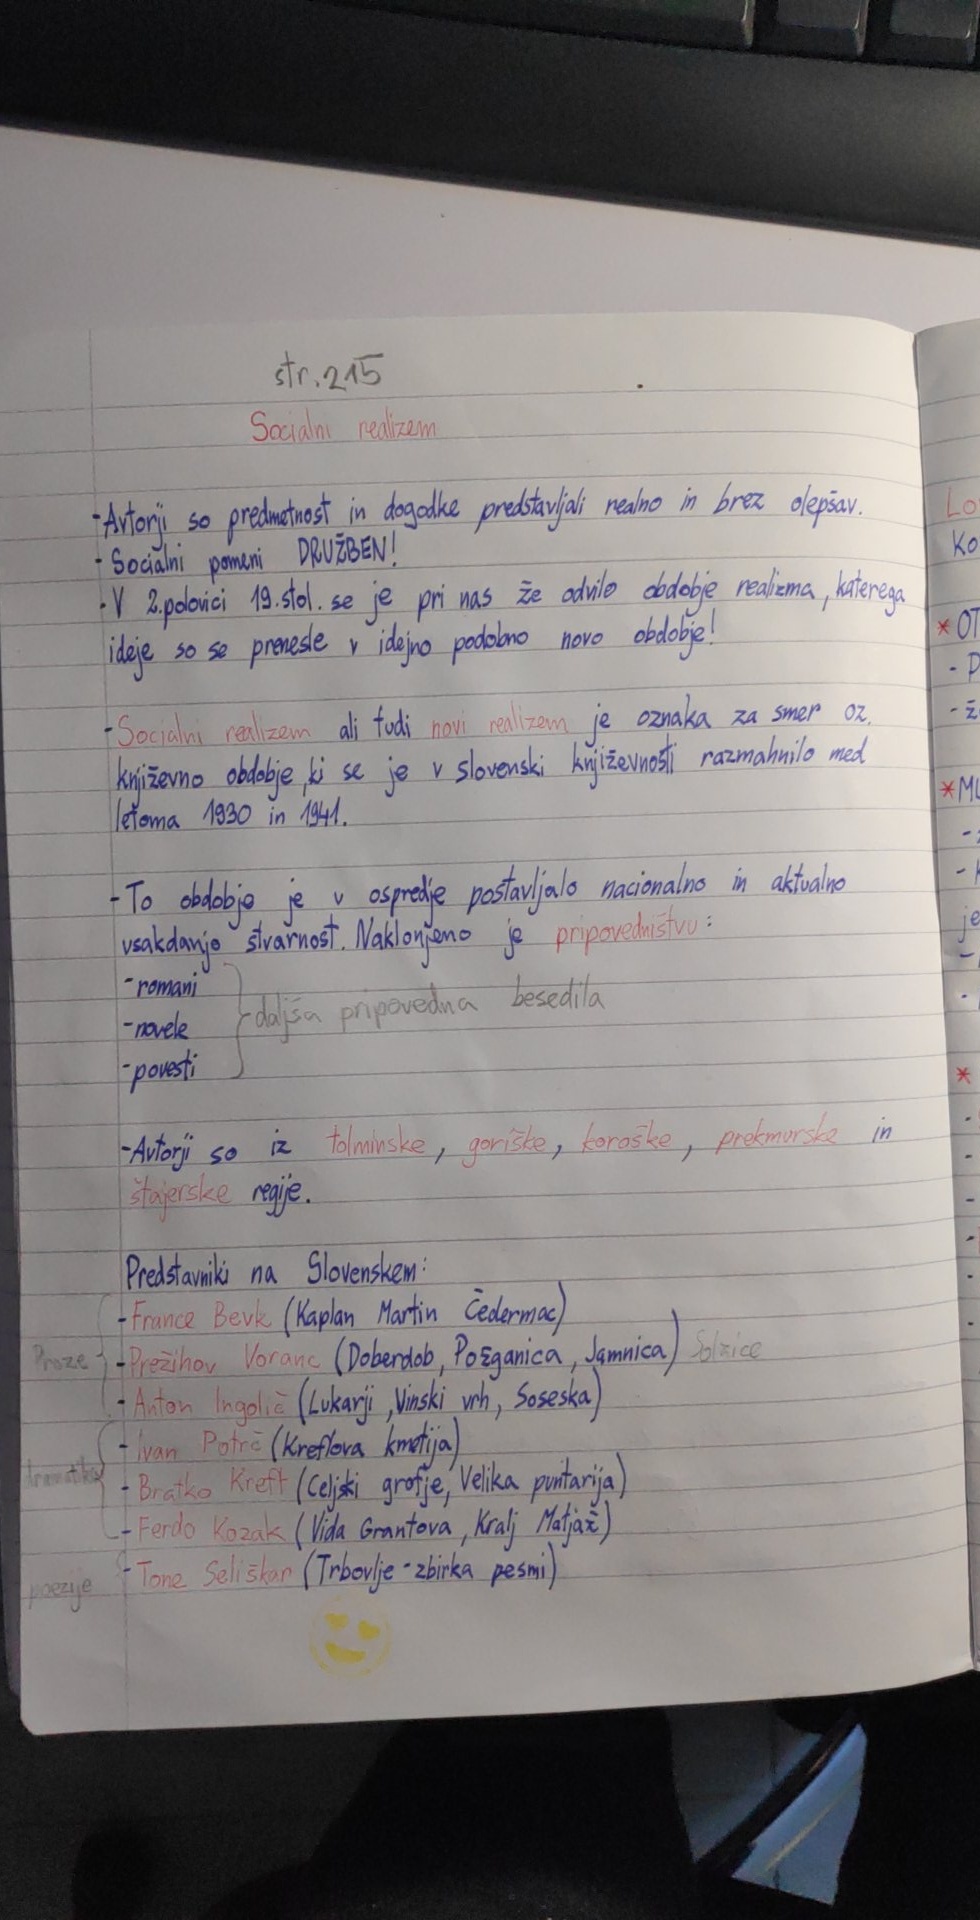 str. 215
Socialni realizem
- Avtorji so predmetnost in dogodke predstavljali realno in brez olepšav.
- Socialni pomeni DRUŽBEN!
- V 2. polovici 19. stol. se je pri nas že odvilo obdobje realizma, katerega
ideje so se prenesle v idejno podobno novo obdobje!
- Socialni realizem ali tudi novi realizem je oznaka za smer oz.
književno obdobje, ki se je v slovenski književnosti razmahnilo med
letoma 1930 in 1941.
- To obdobje je v ospredje postavljalo nacionalno in aktualno
vsakdanjo stvarnost. Naklonjeno je pripovedništvu:
- romani
- novele
- povesti
daljša pripovedna besedila
- Avtorji so iz tolminske, goriške, koroške, prekmurske in
štajerske regije.
Predstavniki na Slovenskem:
- France Bevk (Kaplan Martin Čedermac)
Proze - Prežihov Voranc (Doberdob, Požganica, Jamnica) Solzice
- Anton Ingolič (Lukarji, Vinski vrh, Soseska)
- Ivan Potrč (Kreflova kmetija)
dramatika - Bratko Kreft (Celjski grofje, Velika puntarija)
- Ferdo Kozak (Vida Grantova, Kralj Matjaž)
poezije - Tone Seliškar (Trbovlje - zbirka pesmi)
Lo
Ko
* OT
- P
- ž
* MU
je
*